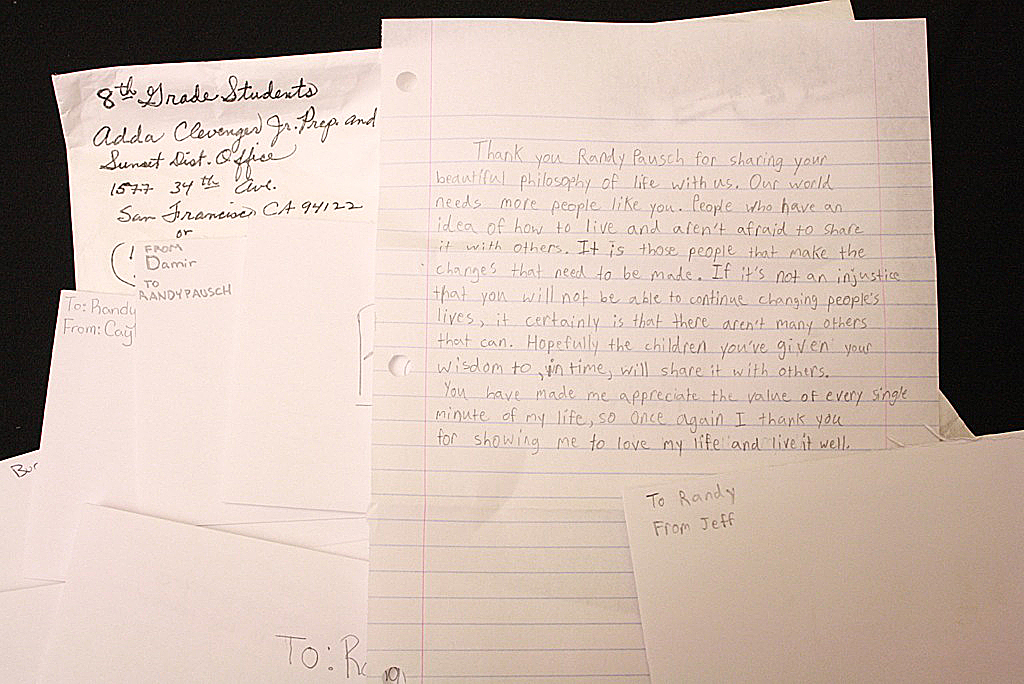 8th Grade Students
Adda Clevenger Jr. Prep. and
Sunset Dist. Office
1577 34th Ave.
San Francisco CA 94122
or
FROM
Damir
TO
RANDY PAUSCH
To: Randy
From: Cayl
Bur
To: Ra
Thank you Randy Pausch for sharing your
beautiful philosophy of life with us. Our world
needs more people like you. People who have an
idea of how to live and aren't afraid to share
it with others. It is those people that make the
changes that need to be made. If it's not an injustice
that you will not be able to continue changing people's
lives, it certainly is that there aren't many others
that can. Hopefully the children you've given your
wisdom to, in time, will share it with others.
You have made me appreciate the value of every single
minute of my life, so once again I thank you
for showing me to love my life and live it well.
To Randy
From Jeff